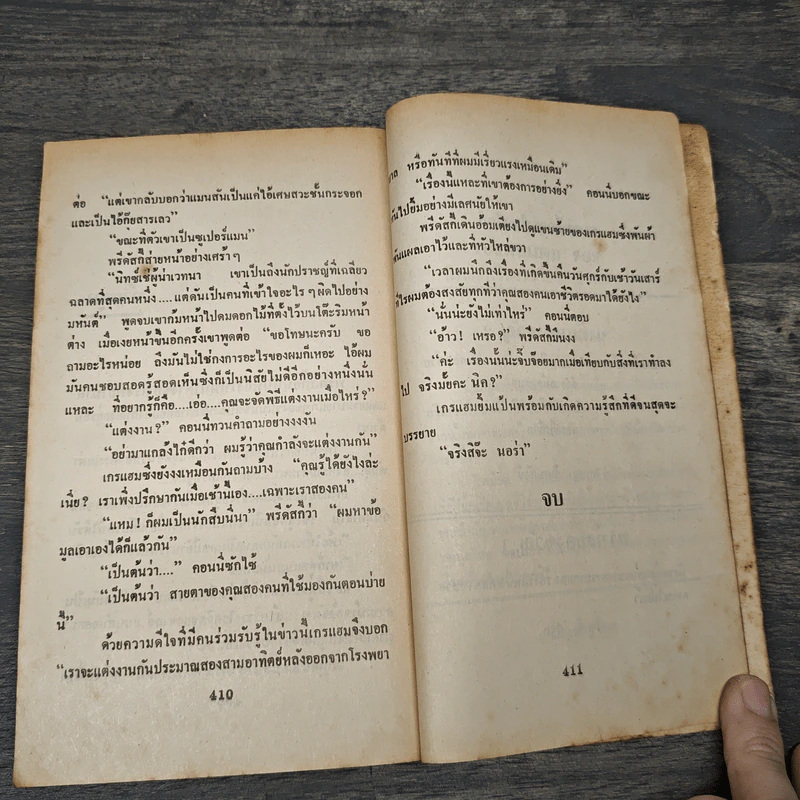 ต่อ “แต่เขากลับบอกว่าแมนสันเป็นแค่ไอ้เศษสวะชั้นกระจอก
และเป็นไอ้กุ๊ยสารเลว”
“ขณะที่ตัวเขาเป็นซูเปอร์แมน”
พรีดัสกี้ส่ายหน้าอย่างเศร้า ๆ
“นิทซ์เช่ผู้น่าเวทนา เขาเป็นถึงนักปราชญ์ที่เฉลียว
ฉลาดที่สุดคนหนึ่ง....แต่ดันเป็นคนที่เข้าใจอะไร ๆ ผิดไปอย่าง
มหันต์” พูดจบเขาก้มหน้าไปดมดอกไม้ที่ตั้งไว้บนโต๊ะริมหน้า
ต่าง เมื่อเงยหน้าขึ้นอีกครั้งเขาพูดต่อ “ขอโทษนะครับ ขอ
ถามอะไรหน่อย ถึงมันไม่ใช่กงการอะไรของผมก็เหอะ ไอ้ผม
มันคนชอบสอดรู้สอดเห็นซึ่งก็เป็นนิสัยไม่ดีอีกอย่างหนึ่งนั่น
แหละ ที่อยากรู้ก็คือ....เอ่อ....คุณจะจัดพิธีแต่งงานเมื่อไหร่?”
“แต่งงาน?” คอนนี่ทวนคำถามอย่างงงงัน
“อย่ามาแกล้งไก๋ดีกว่า ผมรู้ว่าคุณกำลังจะแต่งงานกัน”
เกรแฮมซึ่งยังงงเหมือนกันถามบ้าง “คุณรู้ได้ยังไงล่ะ
เนี่ย? เราเพิ่งปรึกษากันเมื่อเช้านี้เอง....เฉพาะเราสองคน”
“แหม! ก็ผมเป็นนักสืบนี่นา” พรีดัสกี้ว่า “ผมหาข้อ
มูลเอาเองได้ก็แล้วกัน”
“เป็นต้นว่า....” คอนนี่ซักไซ้
“เป็นต้นว่า สายตาของคุณสองคนที่ใช้มองกันตอนบ่าย
นี้”
ด้วยความดีใจที่มีคนร่วมรับรู้ในข่าวนี้เกรแฮมจึงบอก
“เราจะแต่งงานกันประมาณสองสามอาทิตย์หลังออกจากโรงพยา
410
าล หรือทันทีที่ผมมีเรี่ยวแรงเหมือนเดิม”
“เรื่องนี้แหละที่เขาต้องการอย่างยิ่ง” คอนนี่บอกขณะ
หันไปยิ้มอย่างมีเลศนัยให้เขา
พรีดัสกี้เดินอ้อมเตียงไปดูแขนซ้ายของเกรแฮมซึ่งพันผ้า
พันแผลเอาไว้และที่หัวไหล่ขวา
“เวลาผมนึกถึงเรื่องที่เกิดขึ้นคืนวันศุกร์กับเช้าวันเสาร์
ทีไรผมต้องสงสัยทุกทีว่าคุณสองคนเอาชีวิตรอดมาได้ยังไง”
“นั่นน่ะยังไม่เท่าไหร่” คอนนี่ตอบ
“อ้าว! เหรอ?” พรีดัสกี้มึนงง
“ค่ะ เรื่องนั้นน่ะจิ๊บจ๊อยมากเมื่อเทียบกับสิ่งที่เราทำลง
ไป จริงมั้ยคะ นิค?”
เกรแฮมยิ้มแป้นพร้อมกับเกิดความรู้สึกที่ดีจนสุดจะ
บรรยาย
“จริงสิจ๊ะ นอร่า”
จบ
411